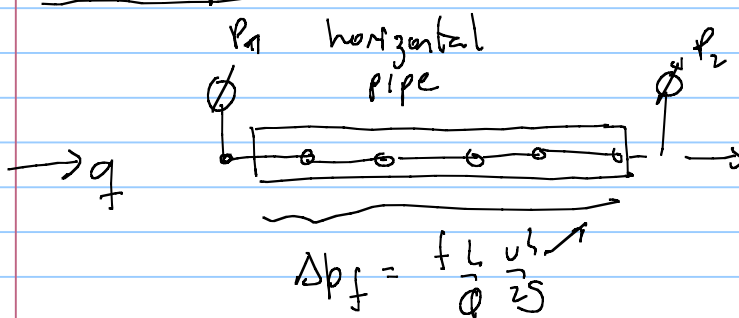 P1 horizontal P2
pipe
→ q
Δpf = f L/φ v²/2g